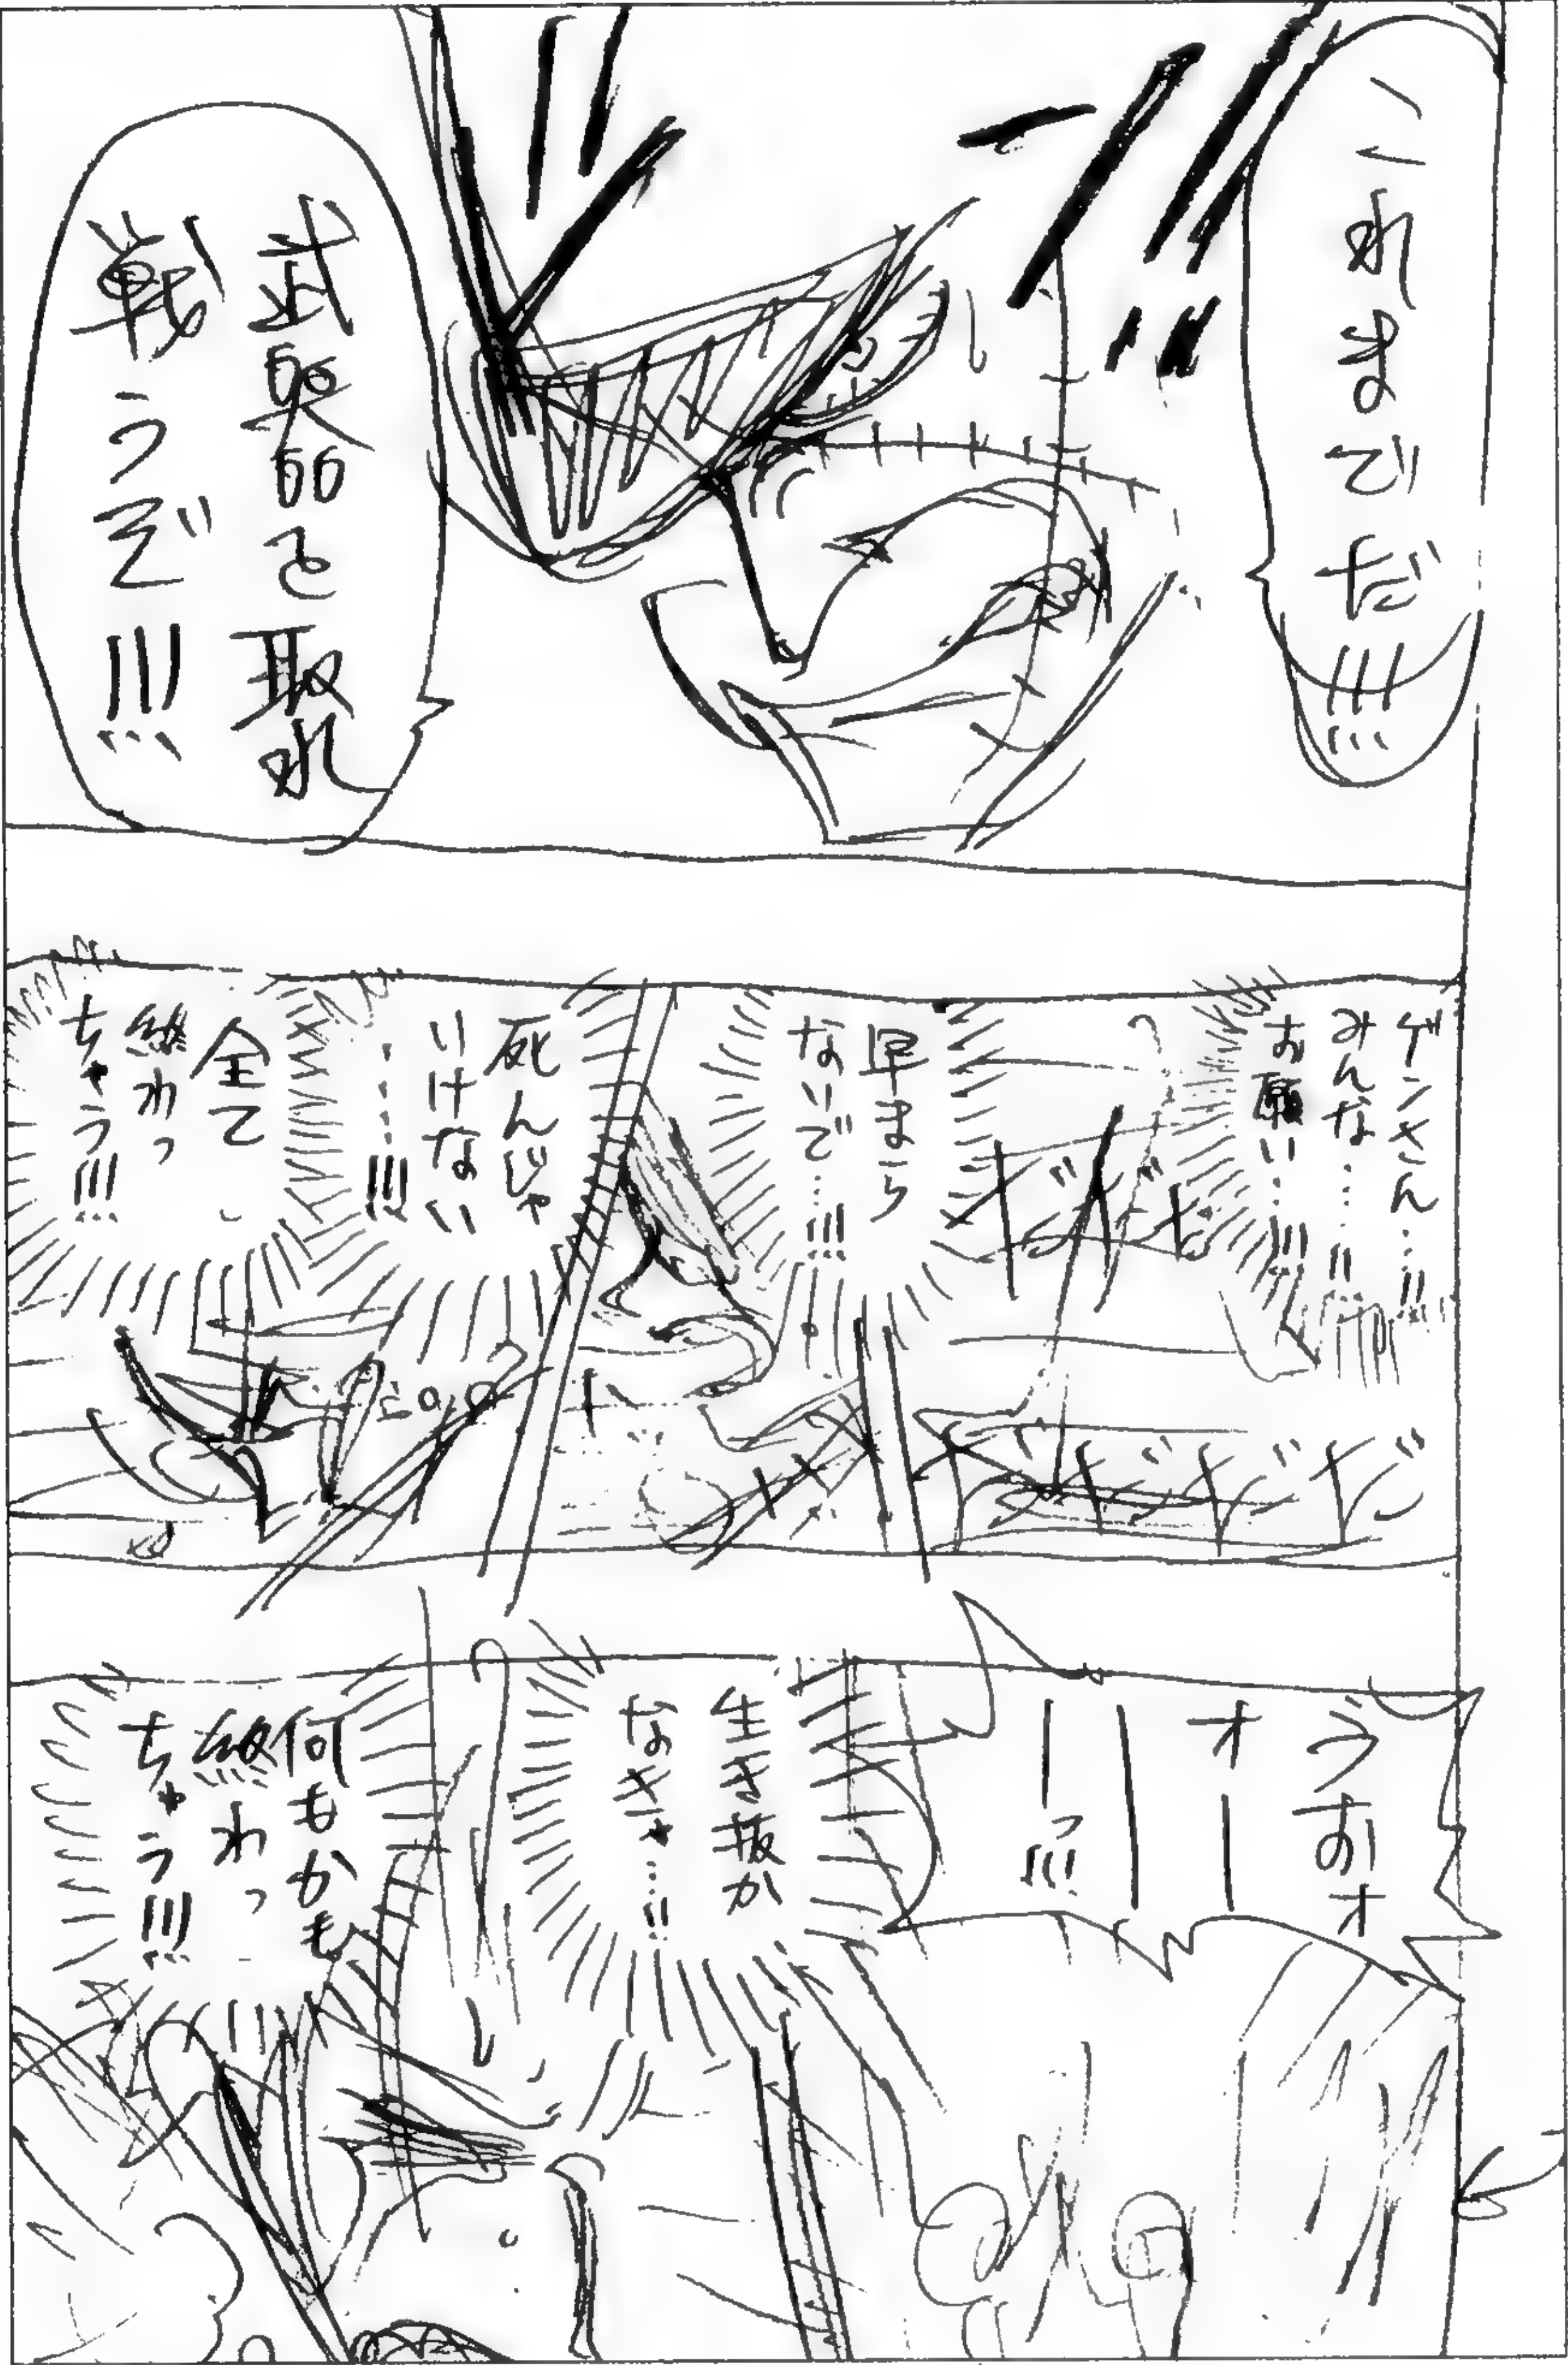 これまでだ!!!
武器を取れ
戦うぞ!!!
ゲンさん…!!
みんな…!!
お願い…!!!
早まら
ないで…!!!
死んじゃ
いけない
……!!!
全て
終わっ
ちゃう!!!
ザザザ
ザザザザ
ウおォ
オー
ー
ーっ!!!
生き抜か
なきゃ…!!
何もかも
終わっ
ちゃう!!!